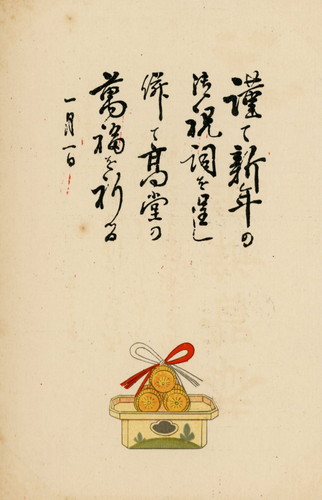 謹て新年の
御祝詞を呈し
併て高堂の
萬福を祈る
一月一日